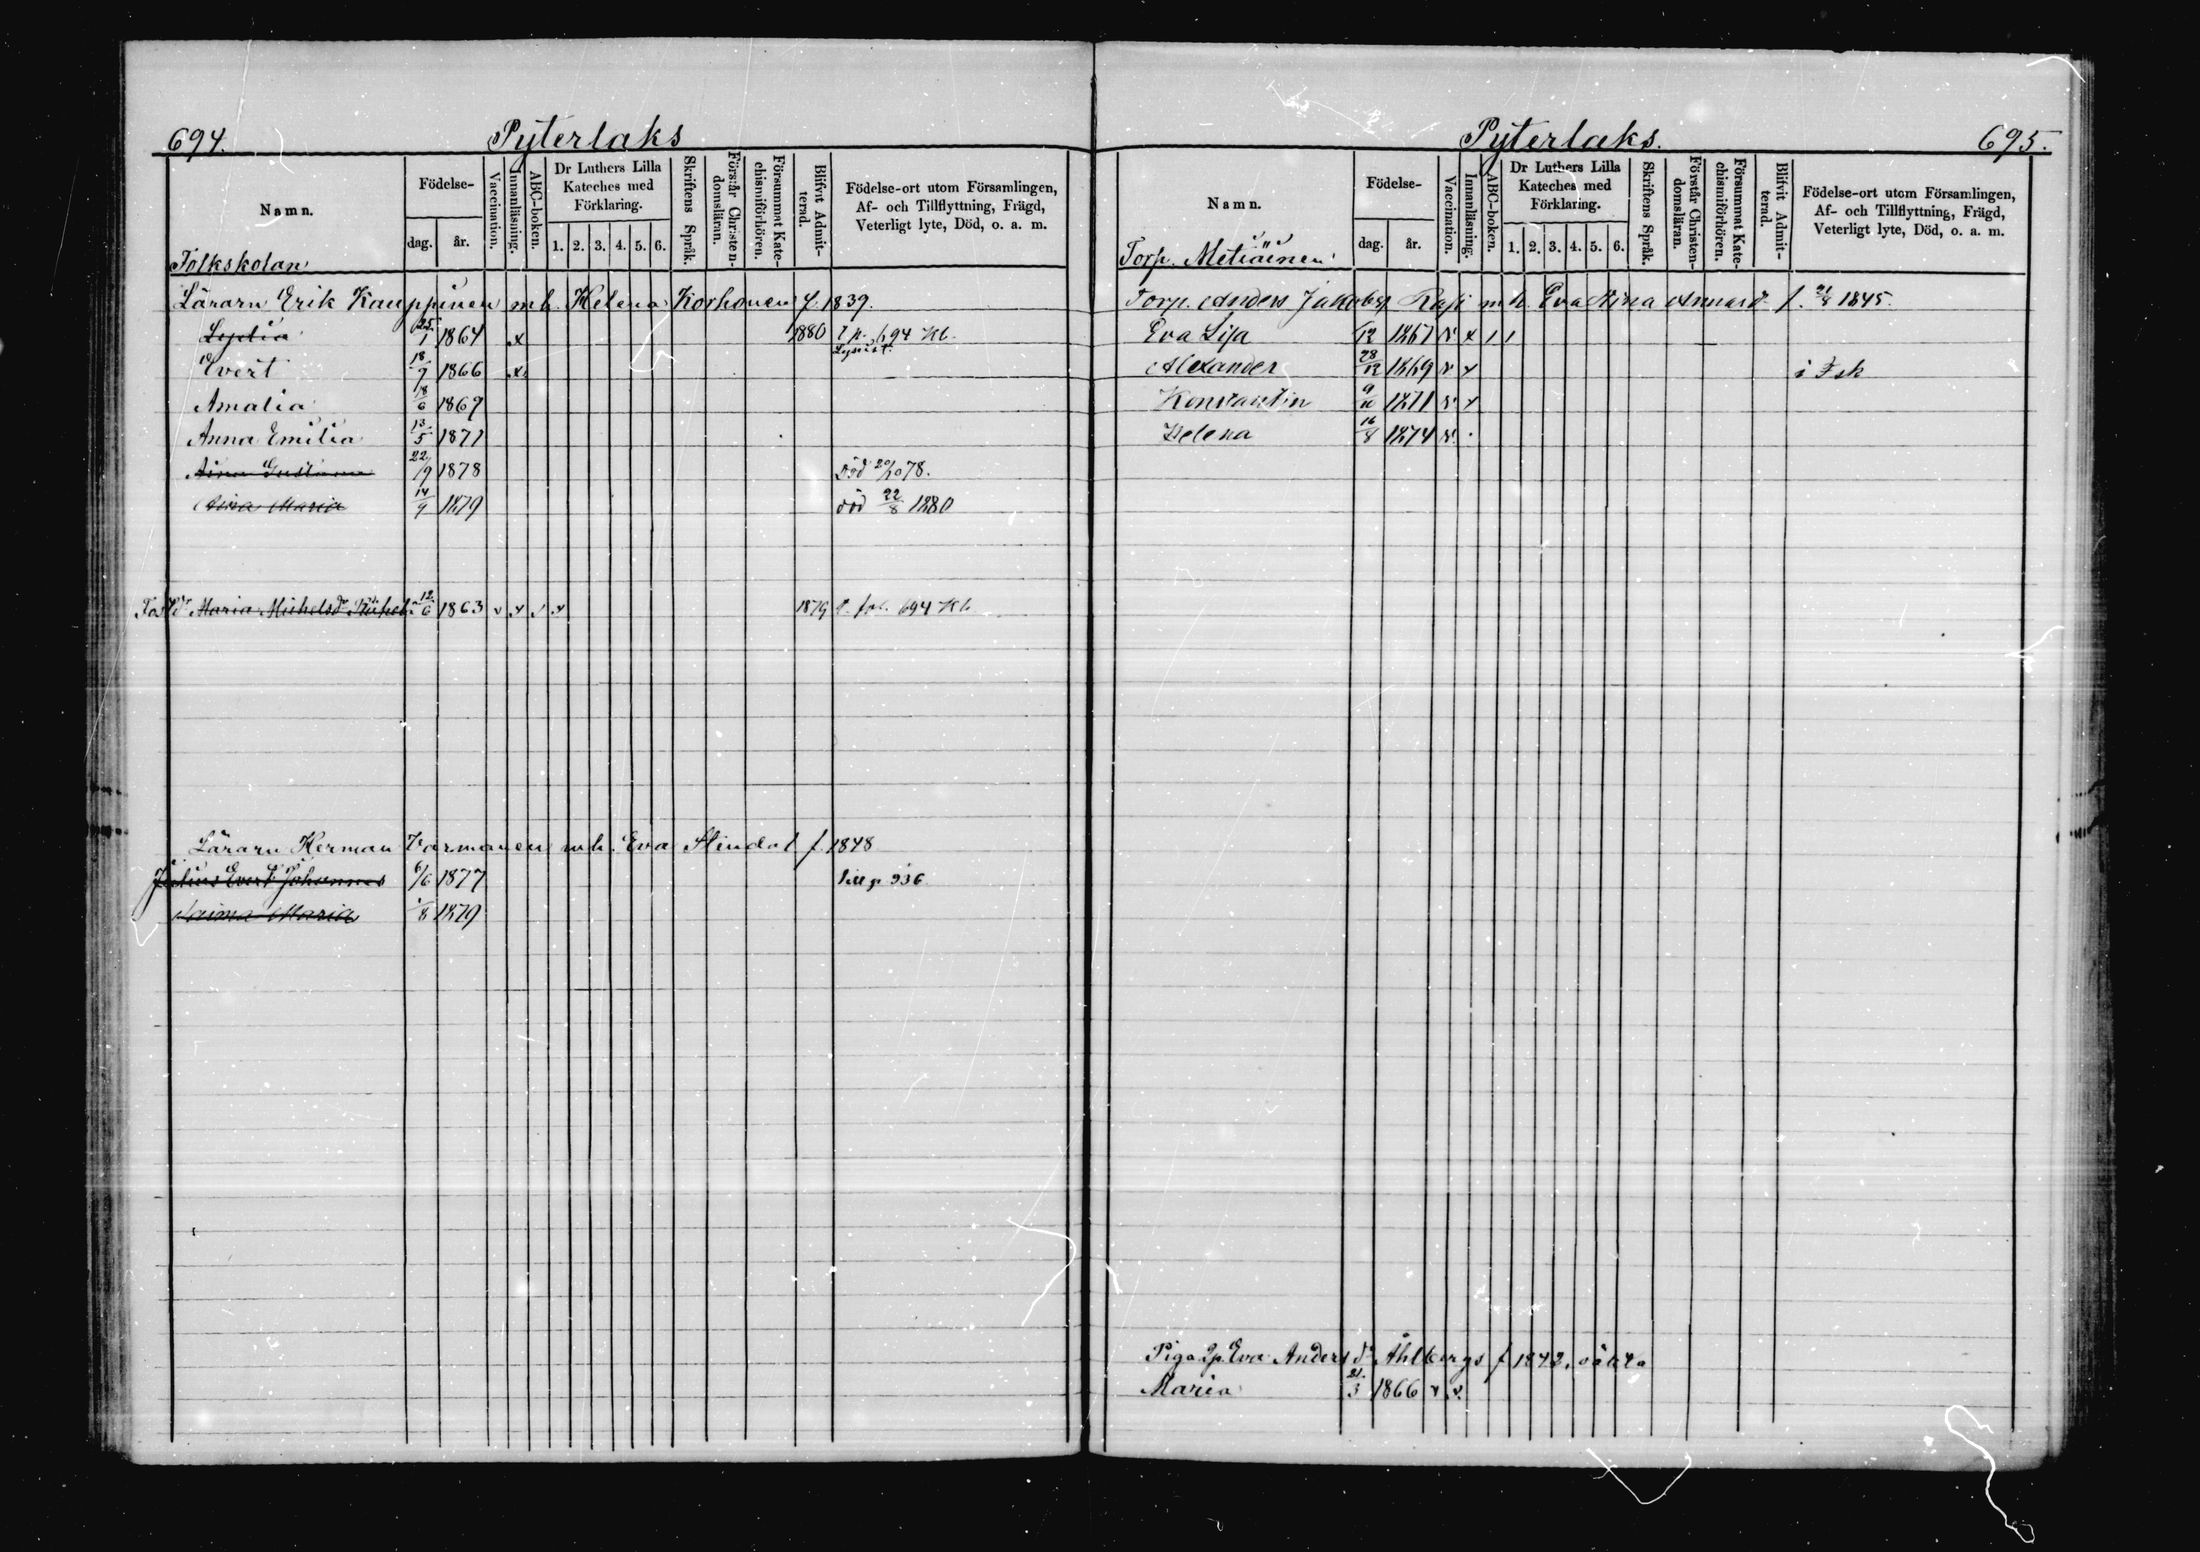 694.
Pyterlaks
Namn.
Födelse-
dag. år.
Vaccination.
Innanläsning.
ABC-boken.
Dr Luthers Lilla
Kateches med
Förklaring.
1. 2. 3. 4. 5. 6.
Skriftens Språk.
Förstår Christen-
domsläran.
Försummat Kate-
chismiförhören.
Blifvit Admit-
terad.
Födelse-ort utom Församlingen,
Af- och Tillflyttning, Frägd,
Veterligt lyte, Död, o. a. m.
Folkskolan
Läraren Erik Kauppinen m. h. Helena Korhonen f. 1839.
Lydia 25/1 1864 x 1880 694 Kb.
Evert 18/7 1866 x
Amalia 18/6 1869
Anna Emilia 13/5 1871
Aina Gustava 22/9 1878 död 20/10 78.
Aina Maria 14/9 1879 död 22/8 1880
Maria Michelsdr 12/6 1863 v v v v 1879 694 Kb
Läraren Herman m. h. Eva Stendal f. 1848
Julius Evert Johannes 6/6 1877 till p 936
Naima Maria 1/8 1879
Pyterlaks.
695.
Namn.
Födelse-
dag. år.
Vaccination.
Innanläsning.
ABC-boken.
Dr Luthers Lilla
Kateches med
Förklaring.
1. 2. 3. 4. 5. 6.
Skriftens Språk.
Förstår Christen-
domsläran.
Försummat Kate-
chismiförhören.
Blifvit Admit-
terad.
Födelse-ort utom Församlingen,
Af- och Tillflyttning, Frägd,
Veterligt lyte, Död, o. a. m.
Torp. Metiäinen
Torp. Anders Jakobsp m. h. Eva Stina f. 21/8 1845.
Eva Lisa 1867 v x 1 1
Alexander 28/12 1869 v v i Fsk
Konstantin 9/10 1871 v v
Helena 16/8 1874 v.
Piga Eva Andersdr Åhlbergs f 1843,
Maria 21/3 1866 v v.